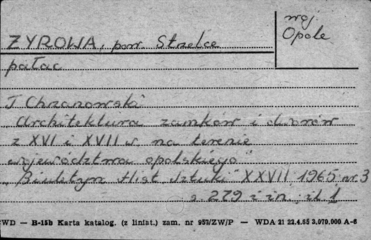 ŻYROWA, pow. Strzelce
woj
Opole
pałac
T. Chrzanowski
"Architektura zamków i dworów
z XVI i XVII w. na terenie
województwa opolskiego"
"Biuletyn Hist. Sztuki" XXVII 1965 nr. 3
s 279 i in. il. 1
WD — B-15b Karta katalog. (z linist.) zam. nr 953/ZW/P — WDA 21 22.4.65 2.079.000 A-6